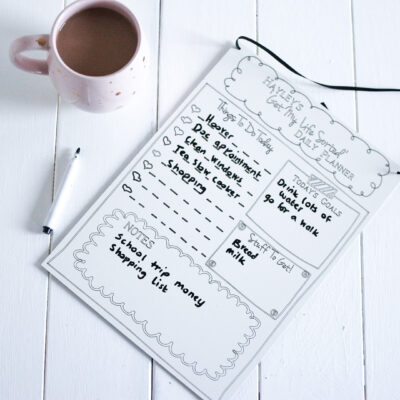 HAYLEY'S
Get My Life Sorted
DAILY PLANNER
Things To Do Today
Hoover
Doc appointment
Clean windows
Tea slow cooker
Shopping
TODAYS GOALS
Drink lots of
water
go for a walk
Stuff To Get!
Bread
milk
NOTES
School trip money
Shopping List